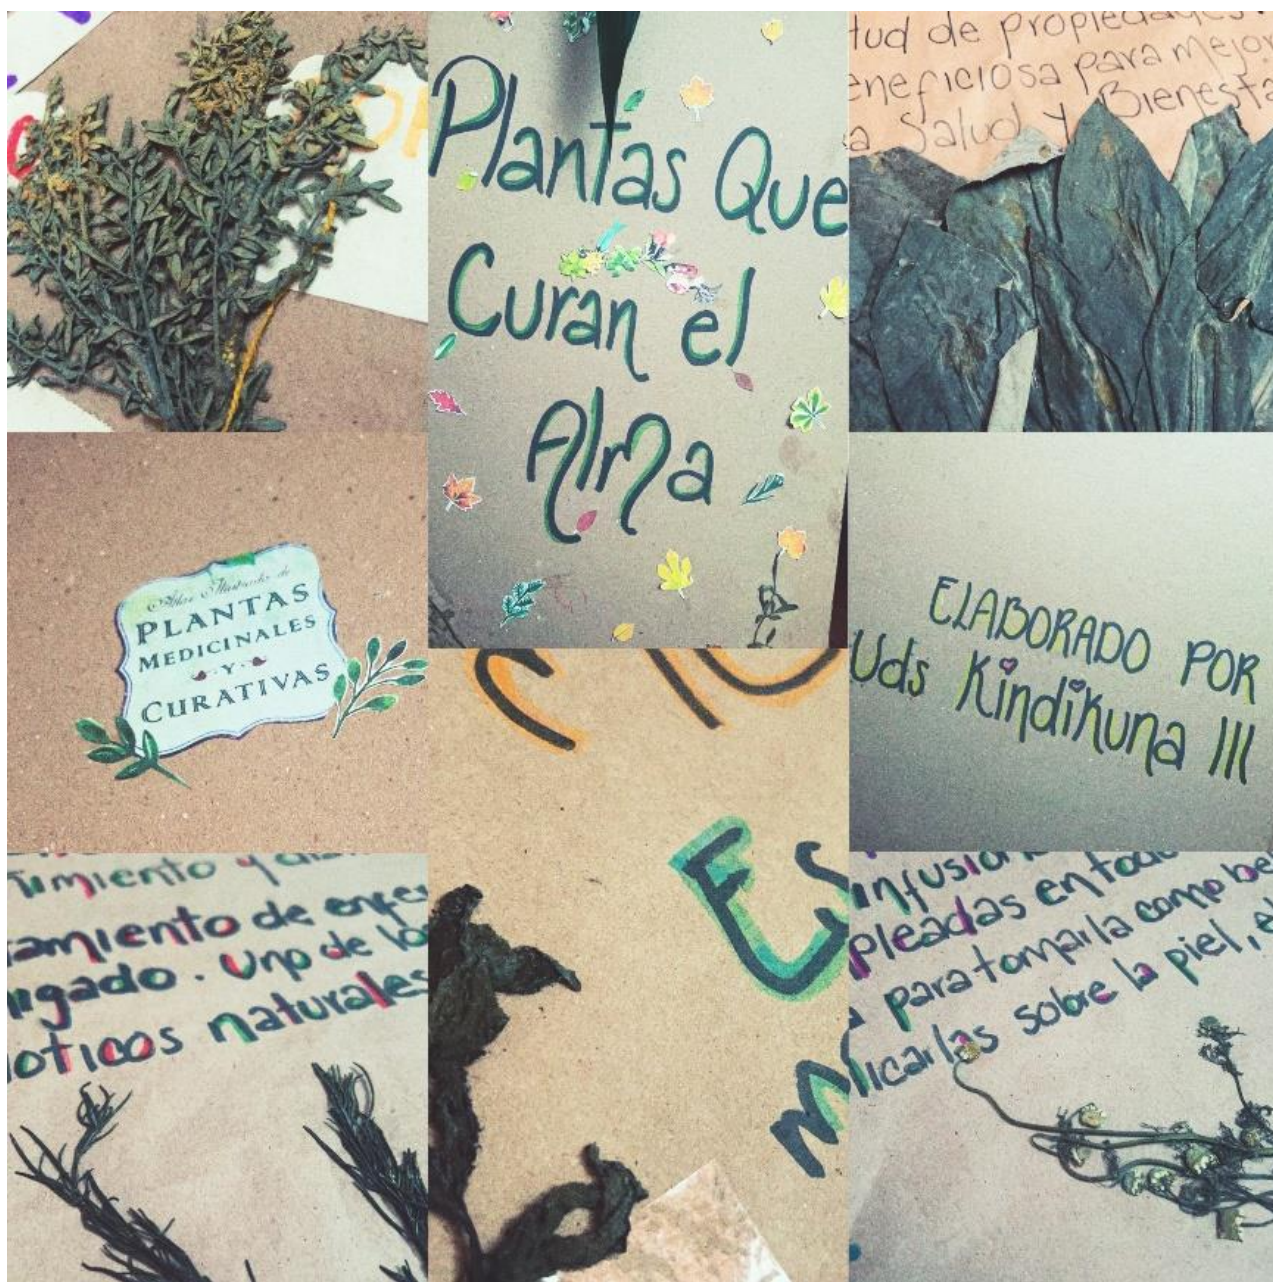 Plantas Que
Curan el
Alma
tud de propiedades.
eneficiosa para mejor
a Salud y Bienesta
Atlas Ilustrado de
PLANTAS
MEDICINALES
Y
CURATIVAS
ELABORADO POR
Uds Kindikuna III
timiento y
tamiento de enfe
igado. Uno de lo
ioticos naturales
Es
m
infusion
pleadas en todo
para tomarla como be
licarlas sobre la piel, e